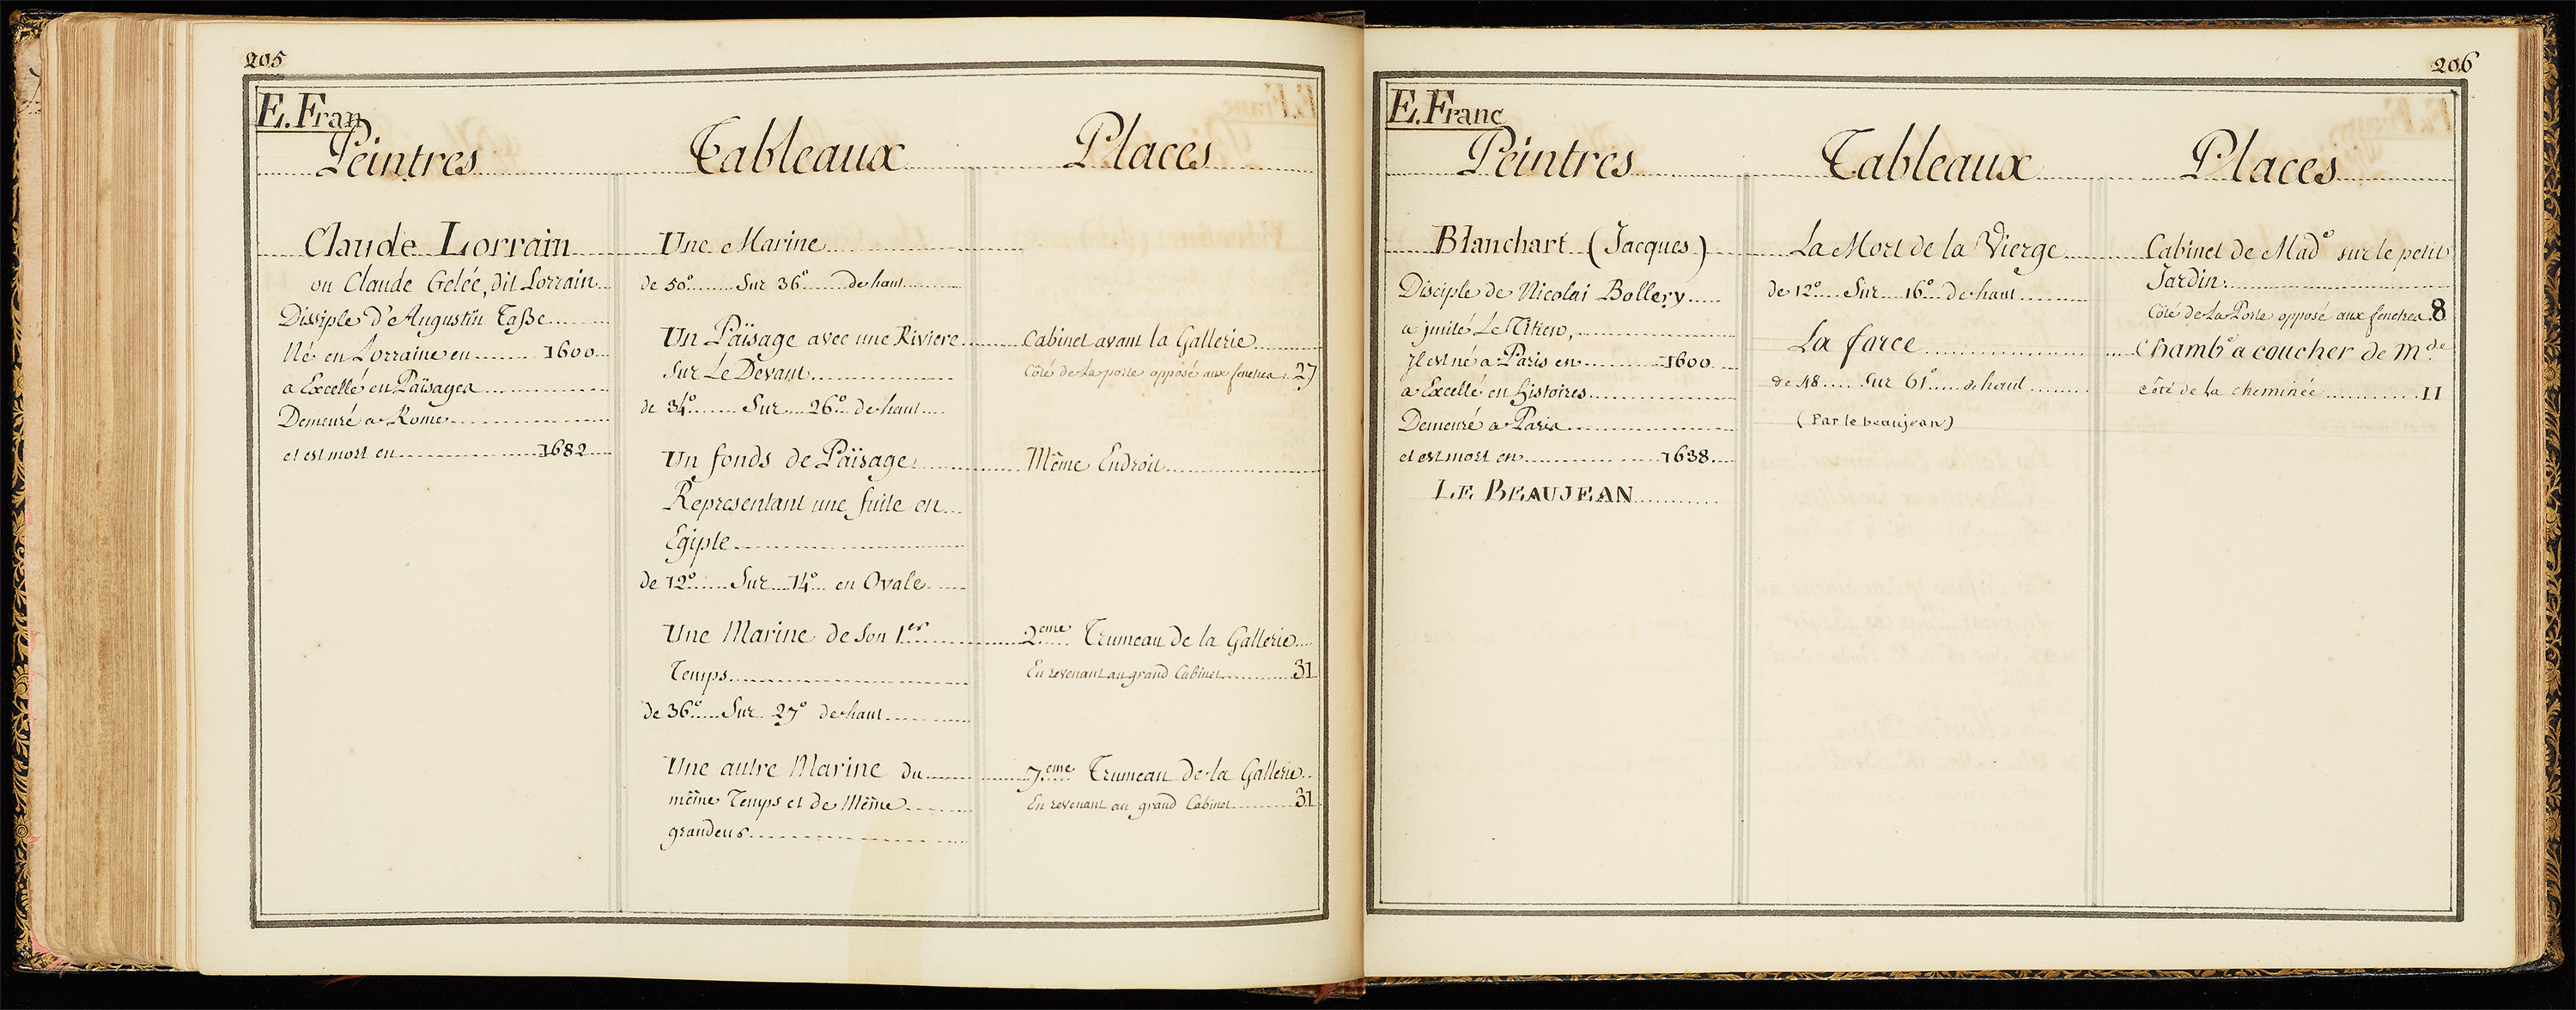 205
E. Fran
Peintres
Tableaux
Places
Claude Lorrain
ou Claude Gelée, dit Lorrain
Dissiple d'Augustin Taße
Né en Lorraine en 1600
a Excellé en Païsages
Demeuré a Rome
et est mort en 1682
Une Marine
de 50° Sur 36° de haut
Un Païsage avec une Riviere
Sur Le Devant
de 34° Sur 26° de haut
Un fonds de Païsage
Representant une fuite en
Egipte
de 12° Sur 14° en Ovale
Une Marine de Son 1er
Temps
de 36° Sur 27° de haut
Une autre Marine du
même Temps et de Même
grandeur
Cabinet avant la Gallerie
Côté de La porte opposé aux fenetres 27
Même Endroit
2eme Trumeau de la Gallerie
En revenant au grand Cabinet 31
7eme Trumeau de la Gallerie
En revenant au grand Cabinet 31
206
E. Franc
Peintres
Tableaux
Places
Blanchart (Jacques)
Disciple de Nicolai Bollery
a jmité Le Titien,
Jl est né a Paris en 1600
a Excellé en histoires
Demeuré a Paris
et est mort en 1638
LE BEAUJEAN
La Mort de la Vierge
de 12° Sur 16° de haut
La force
de 48 sur 61° de haut
(Par le beaujean)
Cabinet de Made sur le petit
Jardin
Côté de La Porte opposé aux fenetres 8
Chambe a coucher de Mde
Côté de la cheminée 11